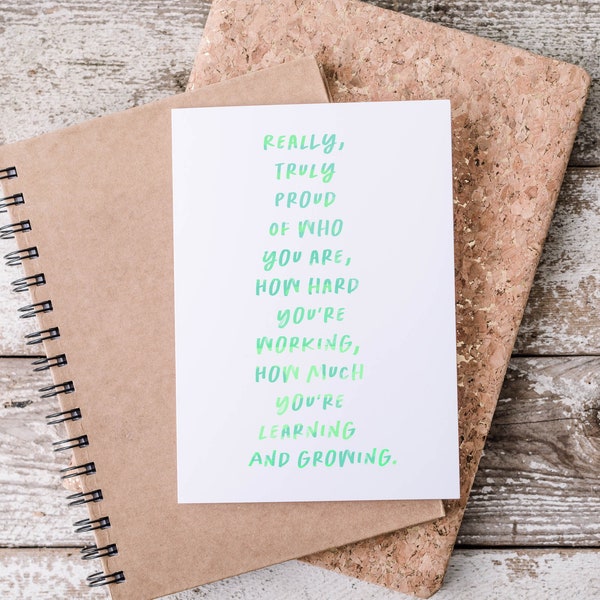 REALLY,
TRULY
PROUD
OF WHO
YOU ARE,
HOW HARD
YOU'RE
WORKING,
HOW MUCH
YOU'RE
LEARNING
AND GROWING.